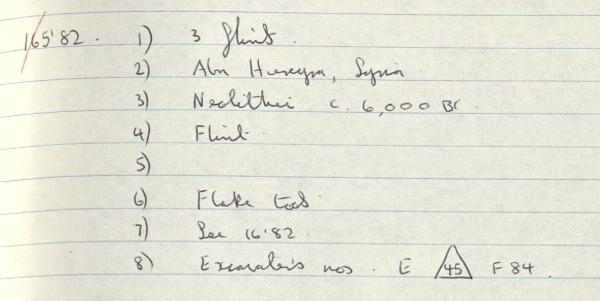 165'82. 1) 3 flint.
2) Abu Hureyra, Syria.
3) Neolithic c. 6,000 BC.
4) Flint.
5)
6) Flake tools.
7) See 16'82.
8) Excavator's nos. E 45 F 84.